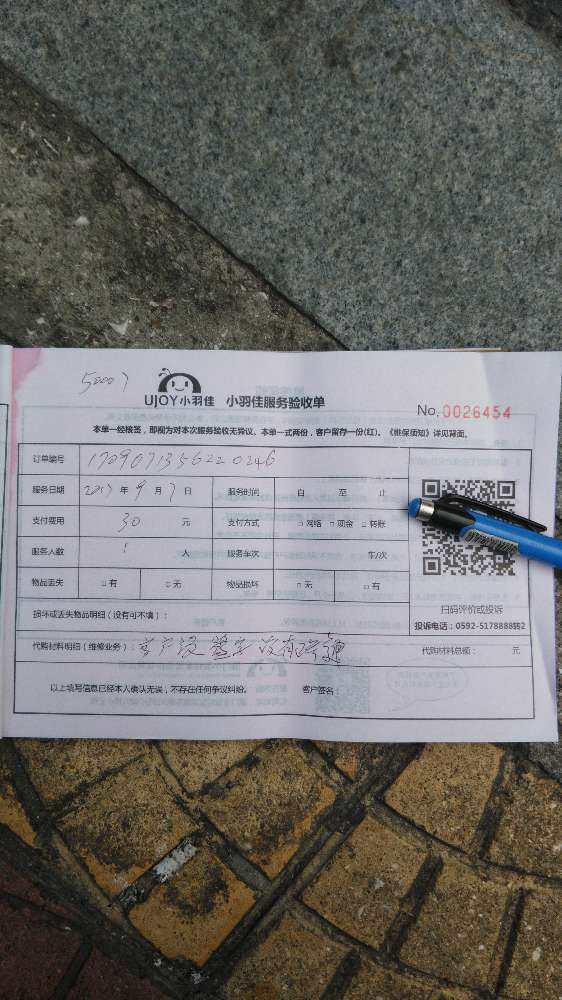 50007
UJOY小羽佳 小羽佳服务验收单
No.0026454
本单一经核签，即视为对本次服务验收无异议、本单一式两份，客户留存一份(红)。《维保须知》详见背面。
订单编号
服务日期 2017 年 9 月 7 日 服务时间 自 至 止
支付费用 30 元 支付方式 □ 网络 □ 现金 □ 转账
服务人数 1 人 服务车次 车/次
物品丢失 □ 有 □ 无 物品损坏 □ 无 □ 有
扫码评价或投诉
损坏或丢失物品明细（没有可不填）：
投诉电话：0592-5178888转2
代购材料明细（维修业务）：客户说 没有 代购材料总额： 元
以上填写信息已经本人确认无误，不存在任何争议纠纷。 客户签名：